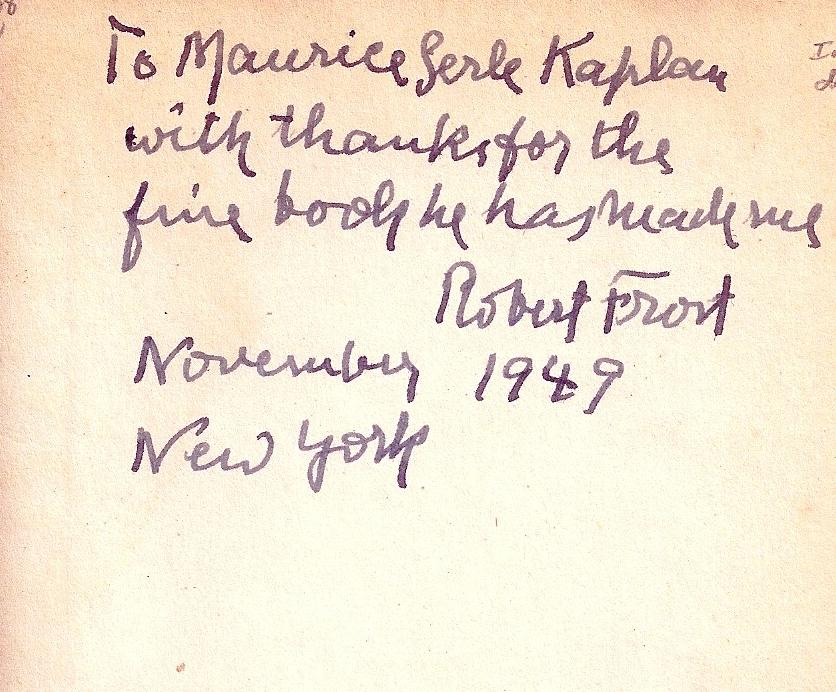 To Maurice Serle Kaplan
with thanks for the
fine book he has made me
Robert Frost
November 1949
New York